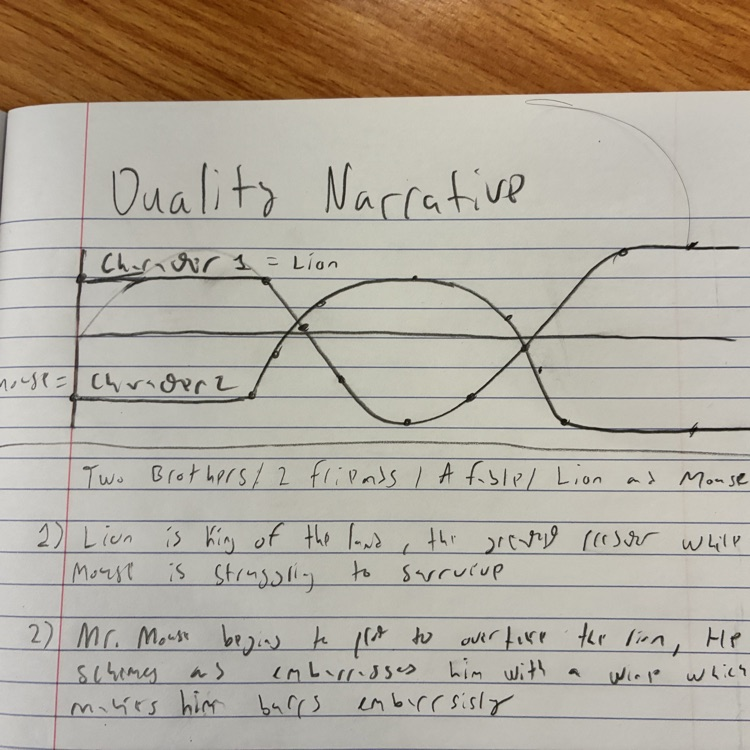 Duality Narrative
Character 1 = Lion
Mouse = Character 2
Two Brothers / 2 friends / A fable / Lion and Mouse
1) Lion is King of the land, the while
Mouse is struggling to survive
2) Mr. Mouse begins to plot to overtake the lion, He
schemes and embarrasses him with a which
makes him